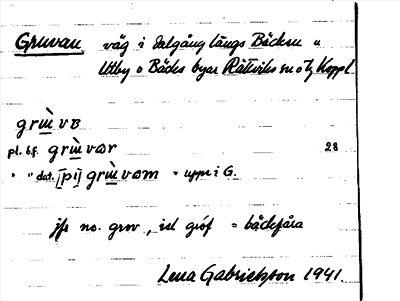 Gruvan väg i dalgång längs Bäcken "
Utby o Bäcks byar Rättviks sn o tg Koppl
grɯ̀ vɒ
pl. bf. grɯ̀ vər 28
" " dat. [pi] grɯ̀ vəm = uppe i G.
jfr no. grov, isl gróf = bäckfåra
Lena Gabrielsson 1941.